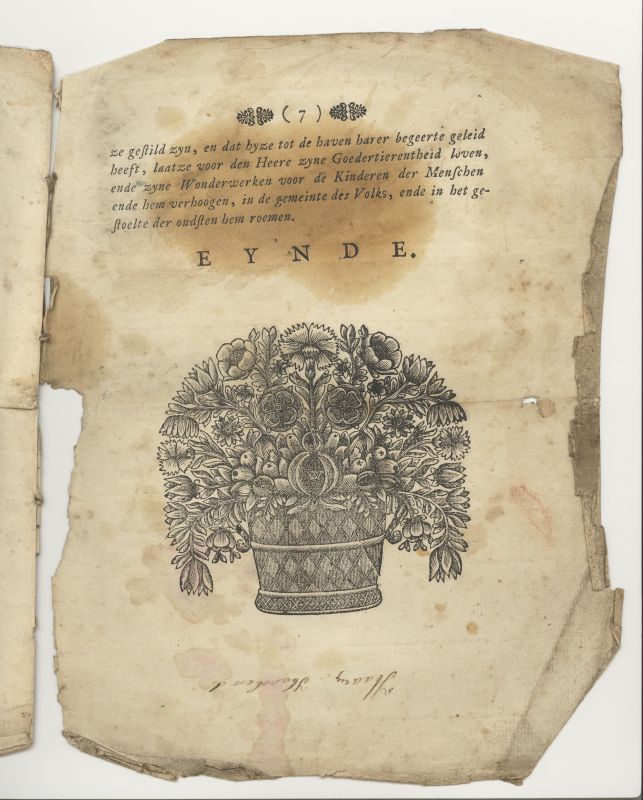 ( 7 )
ze geſtild zyn, en dat hyze tot de haven harer begeerte geleid
heeft, laatze voor den Heere zyne Goedertierentheid loven,
ende zyne Wonderwerken voor de Kinderen der Menſchen
ende hem verhoogen, in de gemeinte des Volks, ende in het ge-
ſtoelte der oudſten hem roemen.
EYNDE.